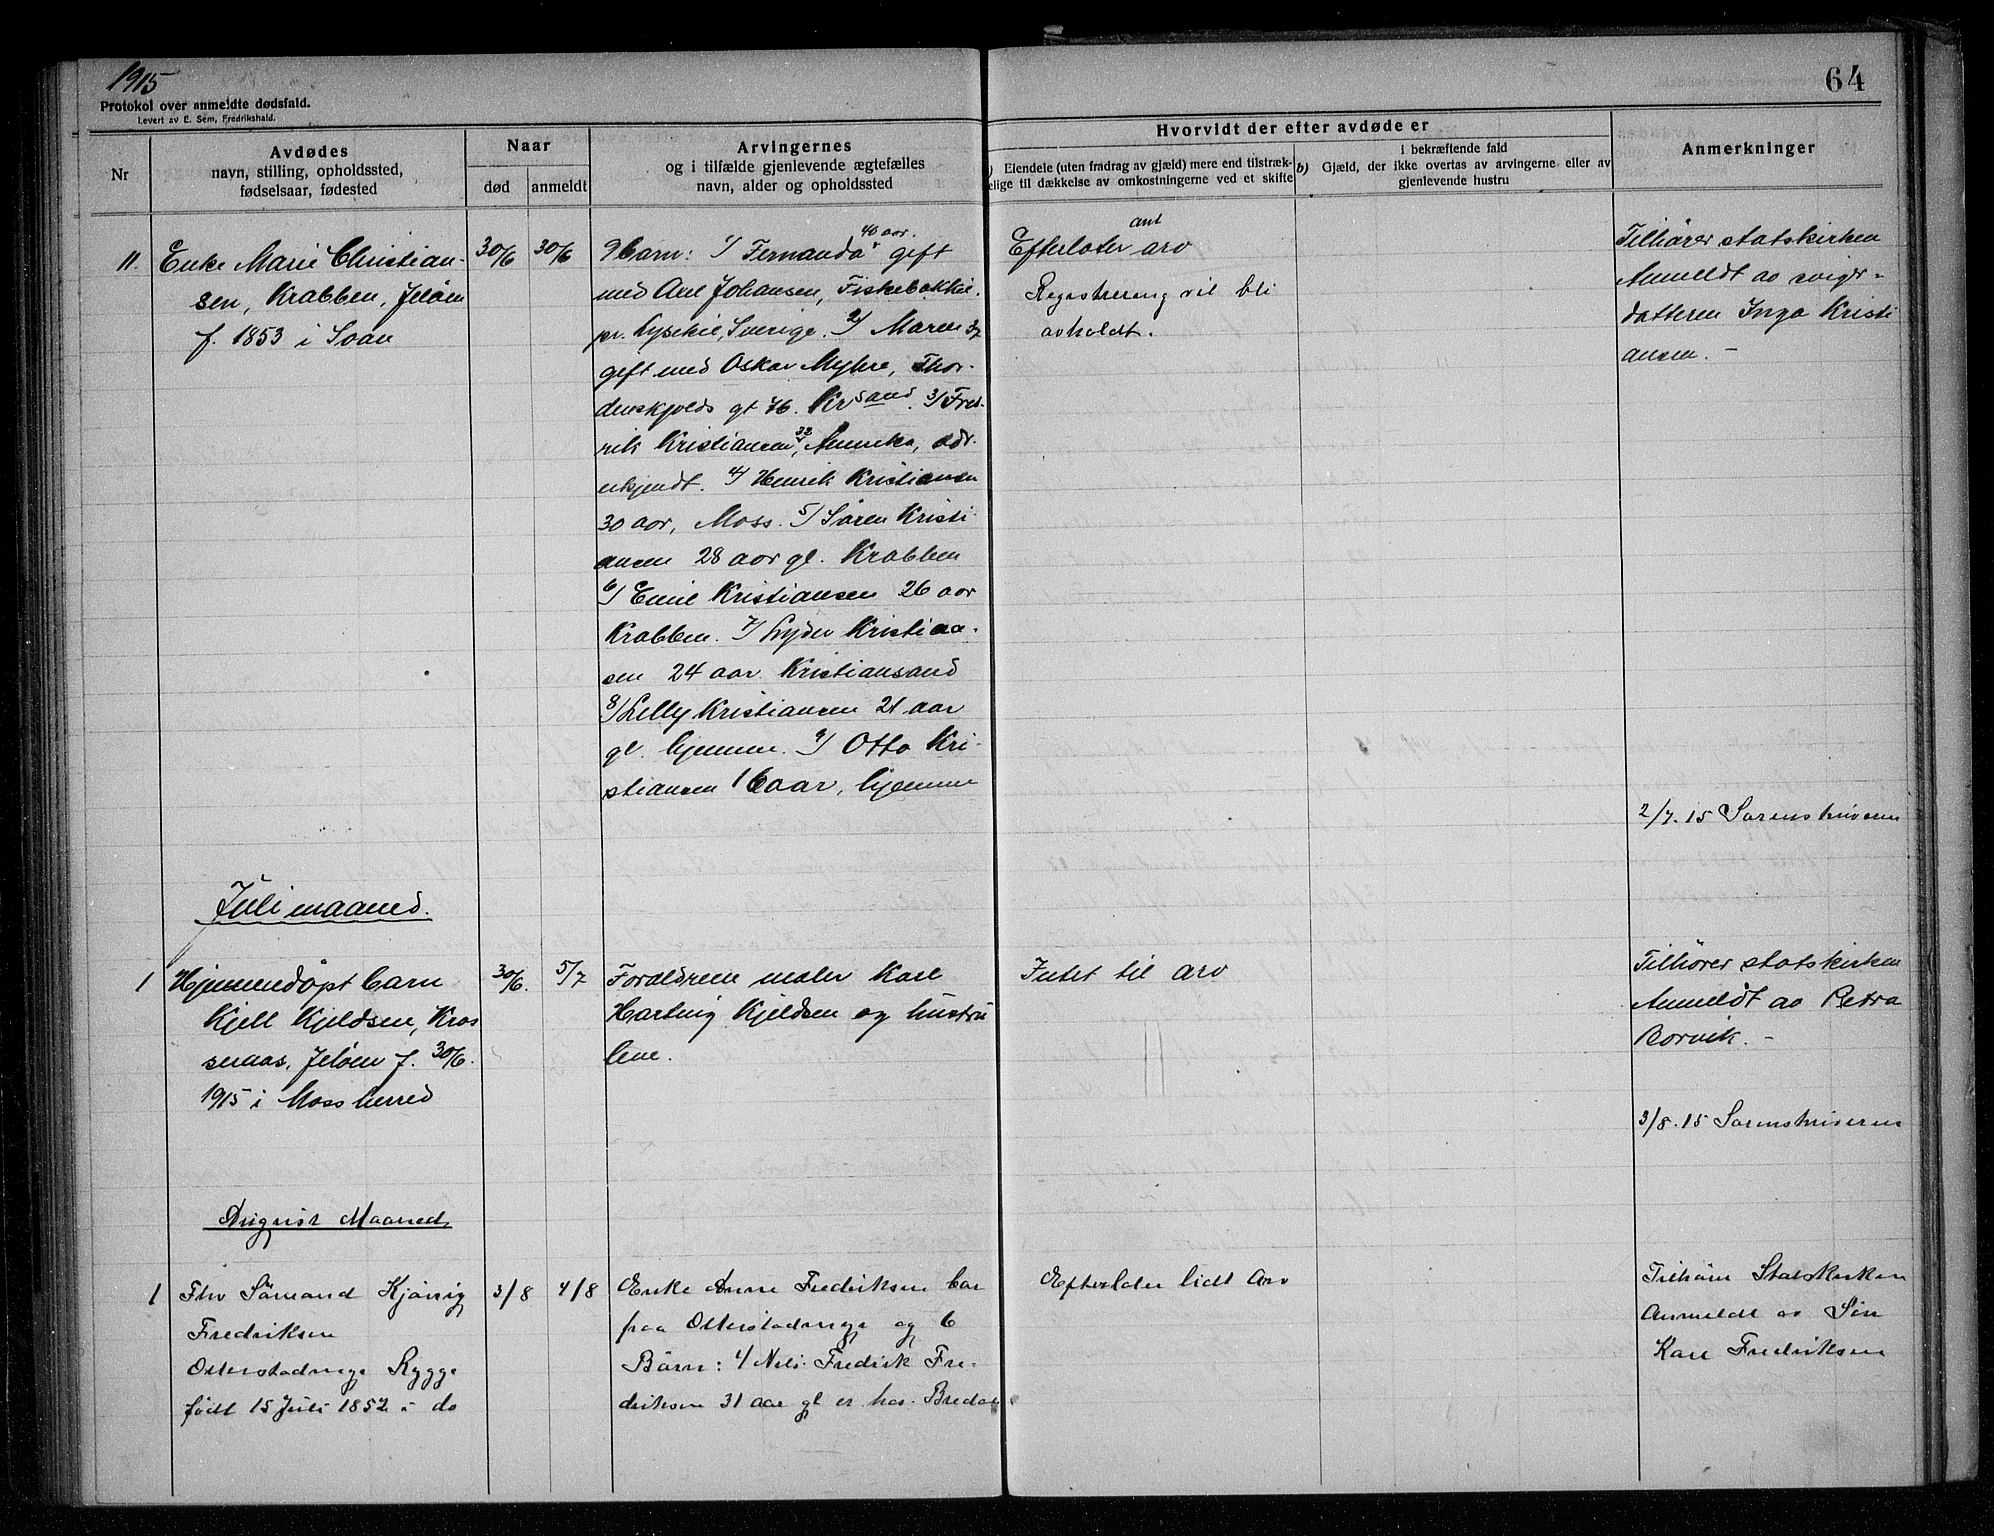 1915
Protokol over anmeldte dødsfald.
Levert av E. Sem, Fredrikshald.
64
Nr
Avdødes
navn, stilling, opholdssted,
fødselsaar, fødested
Naar
død
anmeldt
Arvingernes
og i tilfælde gjenlevende ægtefælles
navn, alder og opholdssted
Hvorvidt der efter avdøde er
Eiendele (uten fradrag av gjæld) mere end tilstræk-
elige til dækkelse av omkostningerne ved et skifte
i bekræftende fald
b) Gjæld, der ikke overtas av arvingerne eller av
gjenlevende hustru
Anmerkninger
11.
Enke Marie Christian-
sen, Krabben, Jeløen
f. 1853 i Soon
30/6
30/6
40 aar.
9 barn: 1/ Fernanda gift
med Axel Johansen, Fiskebækkil.
pr. Lysekil, Sverige. 2/ Maren
gift med Oskar Myhre, Thor-
denskjolds gt 46. Kr sand. 3/ Fred-
rik Kristiansen 32, Amerika, adr.
ukjendt. 4/ Henrik Kristiansen
30 aar, Moss. 5/ Søren Kristi-
ansen 28 aar gl. Krabben
6/ Emil Kristiansen 26 aar
Krabben. 7/ Lyder Kristian-
sen 24 aar Kristiansand
8/ Lelly Kristiansen 21 aar
gl. hjemme. 9/ Otto Kri-
stiansen 16 aar, hjemme
ant
Efterlater arv
Registrering vil bli
avholdt.
Tilhører statskirken
Anmeldt av sviger-
datteren Inga Kristi
ansen. -
2/7. 15 Sorenskriveren
Juli maaned.
1
Hjemmedøpt barn
Kjell Kjeldsen, Kros
sernaas, Jeløen f. 30/6.
1915 i Moss herred
30/6.
5/7
Forældrene maler Karl
Hartvig Kjeldsen og hustru
Line.
Intet til arv
Tilhører statskirken
Anmeldt av Petra
Borvik. -
3/8. 15 Sorenskriveren
August Maaned
1
Fhv Sømand Kjønig
Fredriksen
Osterstadeie Rygge
født 15 Juli 1852 i do
3/8
4/8
Enke Anne Fredriksen bor
paa Osterstadeie og 6
Børn: 1/ Nils Fredrik Fre-
driksen 31 aar gl er hos
Efterlader lidt Arv
Tilhører Statskirken
Anmeldt av Søn
Karl Fredriksen